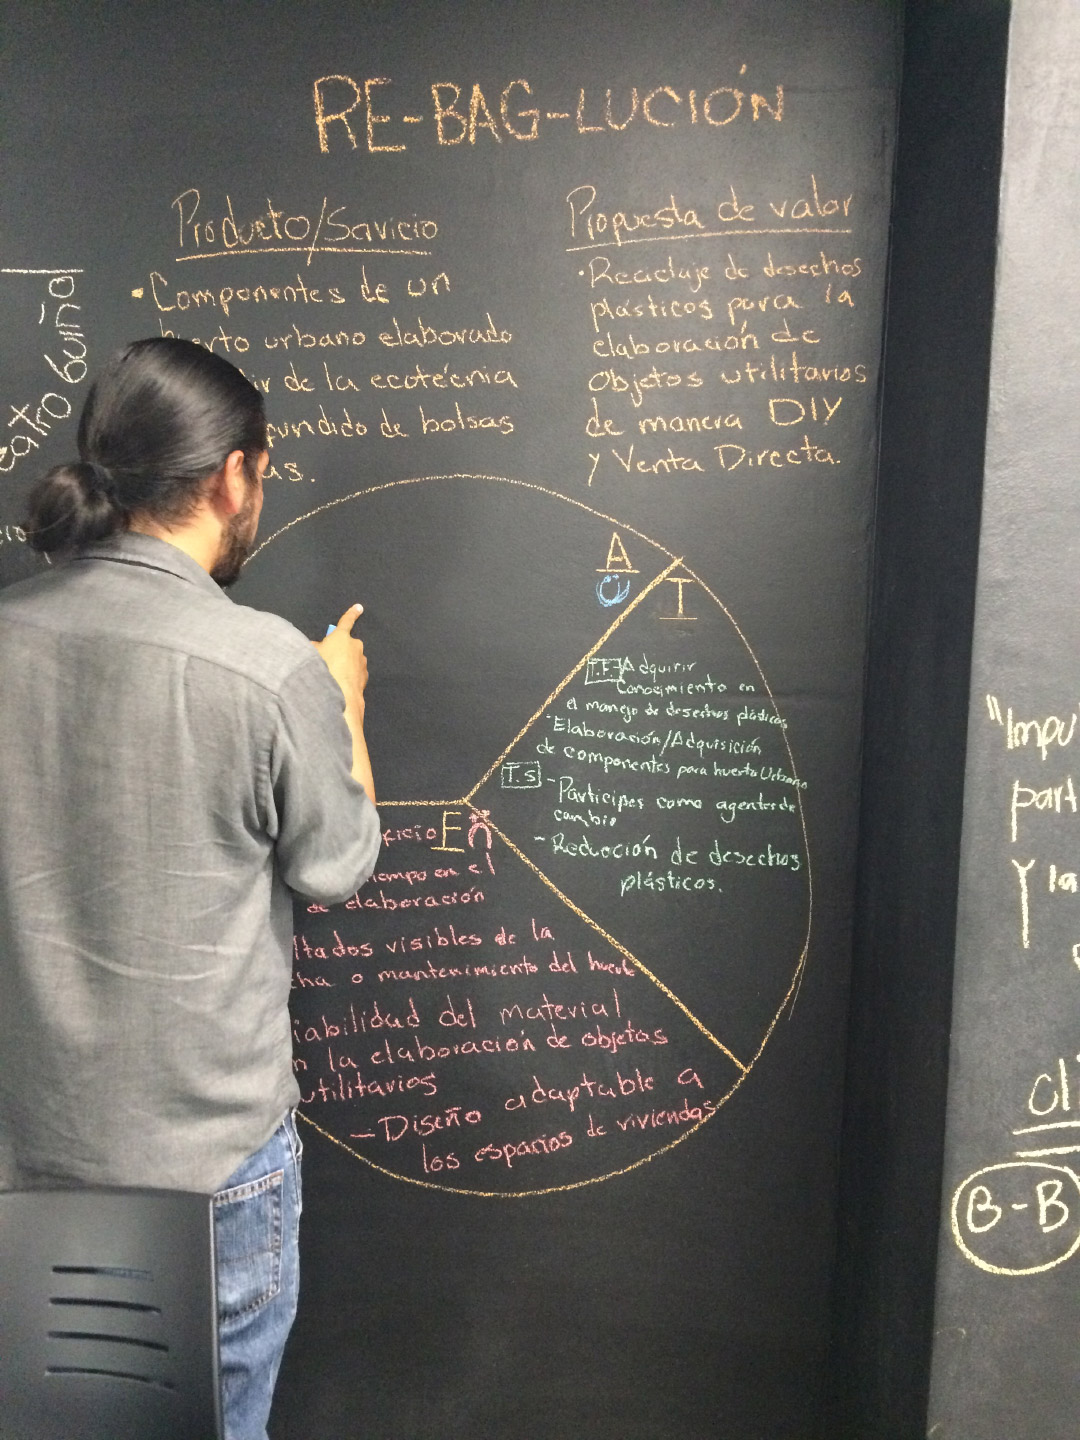 RE-BAG-LUCIÓN
Producto/Servicio
• Componentes de un
urbano elaborado
de la ecotécnia
fundido de bolsas
Propuesta de valor
• Reciclaje de desechos
plásticos para la
elaboración de
Objetos utilitarios
de manera DIY
y Venta Directa.
A
I
T.F. - Adquirir
Conocimiento en
el manejo de desechos plásticos
- Elaboración/Adquisición
de componentes para huerto Urbano
T.S - Participes como agentes de
cambio
- Reducción de desechos
plásticos.
E
en el
de elaboración
visibles de la
o mantenimiento del huerto
del material
la elaboración de objetos
utilitarios
- Diseño adaptable a
los espacios de viviendas
y la
B-B